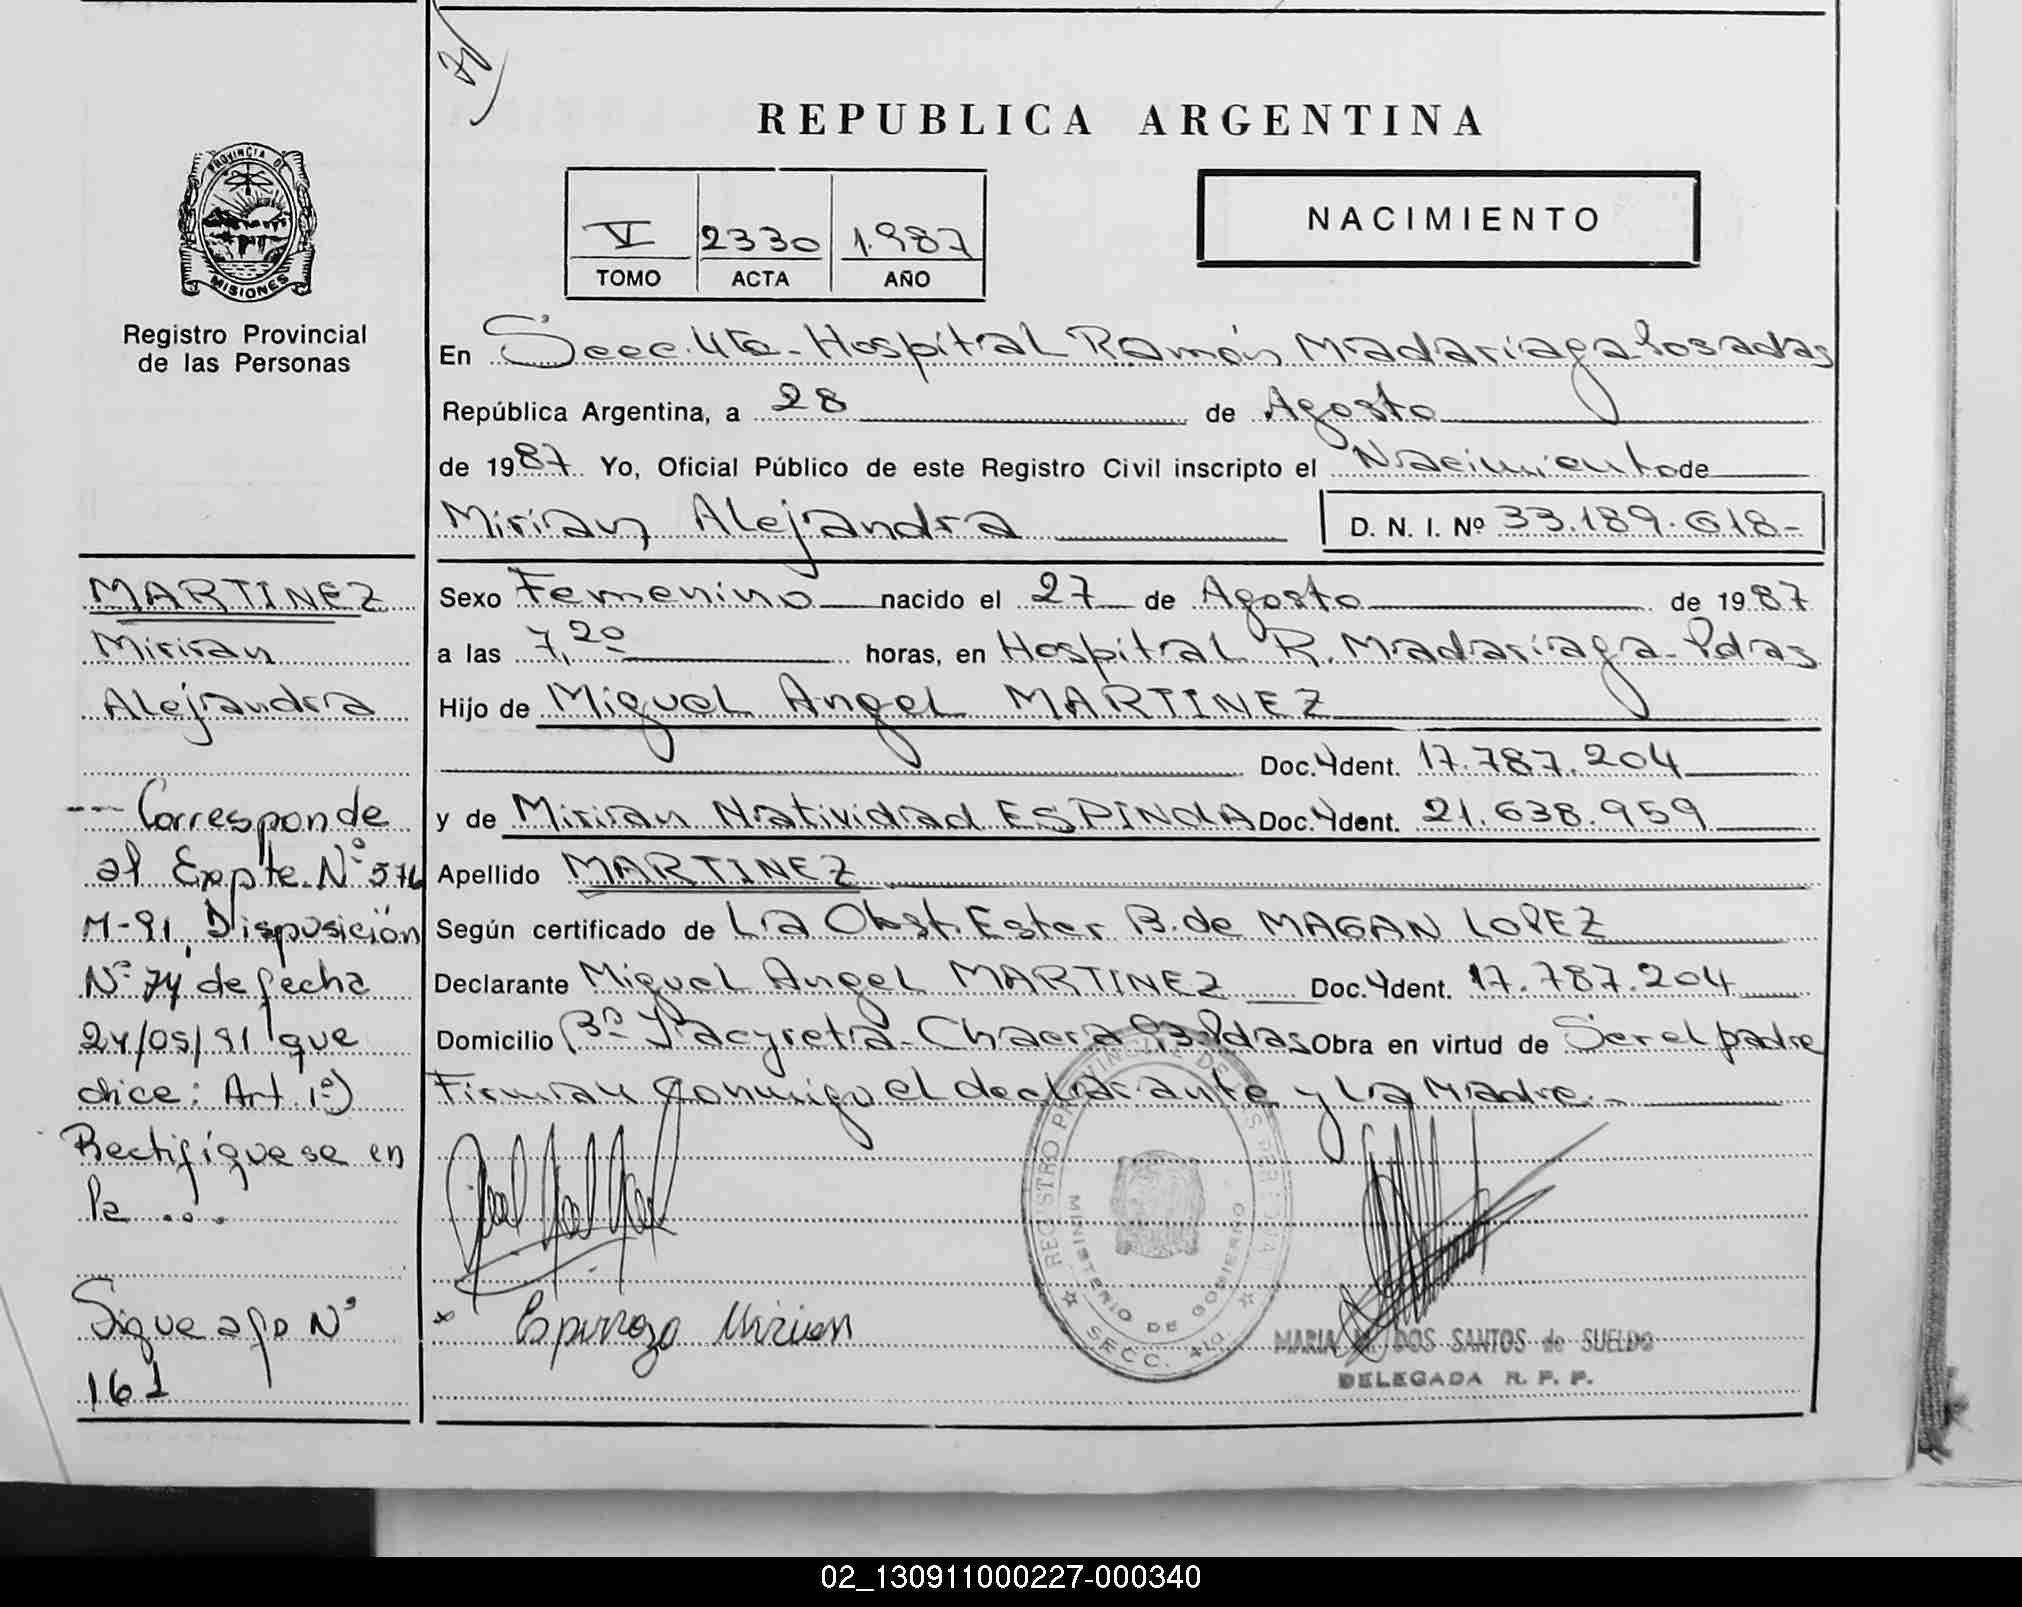 REPUBLICA ARGENTINA
PROVINCIA DE
MISIONES
Registro Provincial
de las Personas
V 2330 1.987
TOMO ACTA AÑO
NACIMIENTO
En Secc. 4ta. Hospital Ramón Madariaga Posadas
República Argentina, a 28 de Agosto
de 1987. Yo, Oficial Público de este Registro Civil inscripto el Nacimiento de
Mirian Alejandra D. N. I. Nº 33.189.618-
Sexo Femenino nacido el 27 de Agosto de 1987
a las 7,20 horas, en Hospital R. Madariaga-Pdas
Hijo de Miguel Angel MARTINEZ
Doc. Ydent. 17.787.204
y de Mirian Natividad ESPINOLA Doc. Ydent. 21.638.959
Apellido MARTINEZ
Según certificado de La Obst. Ester B. de MAGAN LOPEZ
Declarante Miguel Angel MARTINEZ Doc. Ydent. 17.787.204
Domicilio Bº Yacyretá-Chacra Pdas Obra en virtud de Ser el padre
Firman conmigo el declarante y la Madre.-
MARTINEZ
Mirian
Alejandra
--- Corresponde
al Expte. Nº 576
M-91, Disposición
Nº 74 de fecha
24/05/91 que
dice: Art. 1º)
Rectifíquese en
la ...
Sigue a fo Nº
161
REGISTRO PROVINCIAL DE LAS PERSONAS
MINISTERIO DE GOBIERNO
SECC. 4ta
x Espinoza Mirian
MARIA DOS SANTOS de SUELDO
DELEGADA R. P. P.
02_130911000227-000340